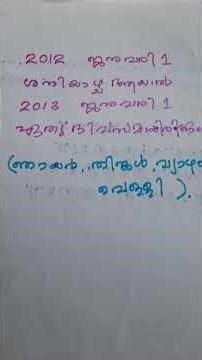 2012 ജനുവരി 1
ശനിയാഴ്ച ആയാൽ
2013 ജനുവരി 1
ഏതു ദിവസമായിരിക്കും
(ഞായർ, തിങ്കൾ, വ്യാഴം
വെള്ളി ).